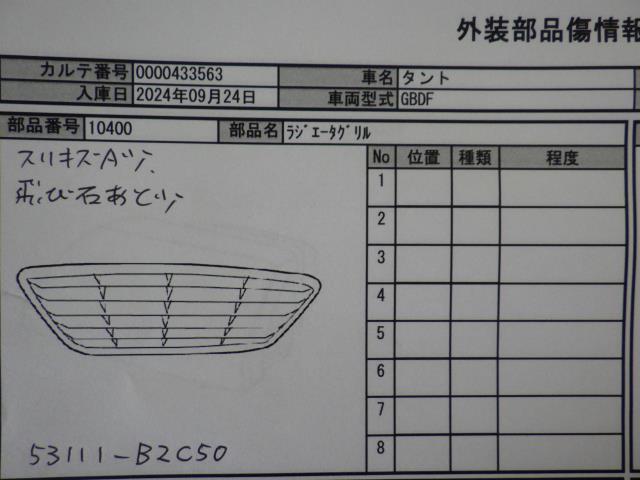 外装部品傷情報
カルテ番号 0000433563 車名 タント
入庫日 2024年09月24日 車両型式 GBDF
部品番号 10400 部品名 ﾗｼﾞｴｰﾀｸﾞﾘﾙ
スリキズAツ、
飛び石あとツ
No 位置 種類 程度
1
2
3
4
5
6
7
8
53111-B2C50